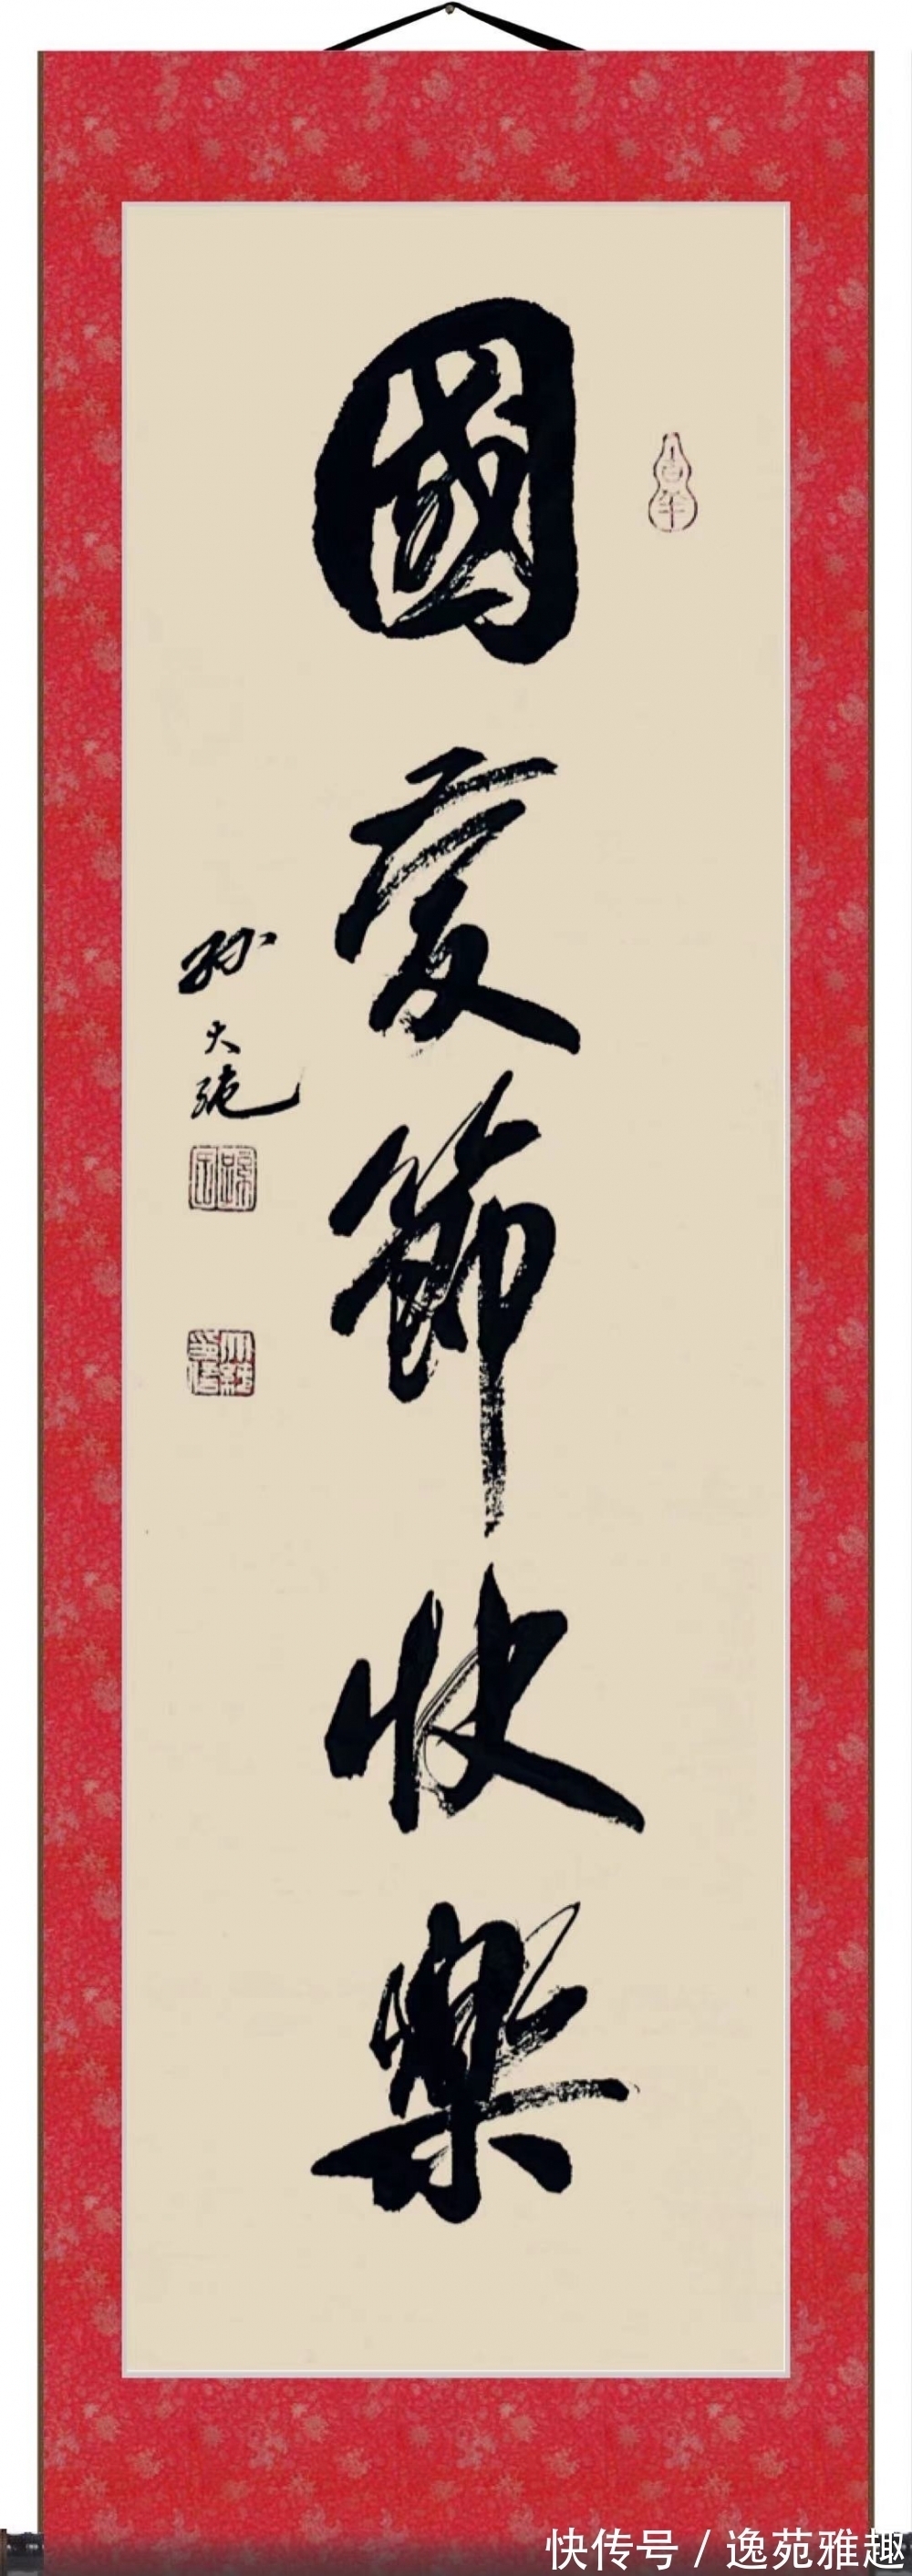 國慶節快樂
孙大
快传号 / 逸苑雅趣